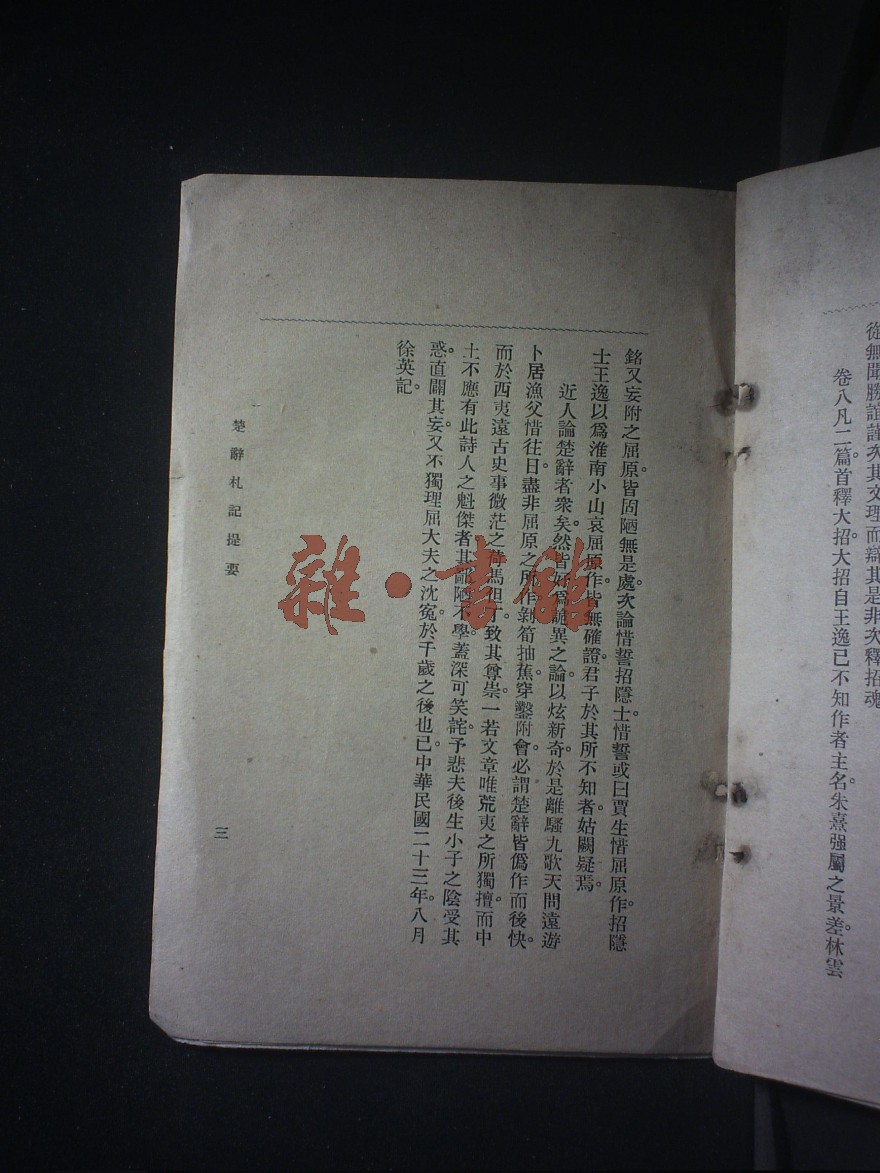 從無聞勝誼謹次其文理而辯其是非次釋招魂
卷八凡二篇首釋大招大招自王逸已不知作者主名朱熹强屬之景差林雲
銘又妄附之屈原。皆固陋無是處。次論惜誓招隱士惜誓或曰賈生惜屈原作招隱
士王逸以爲淮南小山哀屈原作。皆無確證。君子於其所不知者。姑闕疑焉。
近人論楚辭者衆矣。然皆好爲詭異之論。以炫新奇。於是離騷九歌天問遠遊
卜居漁父惜往日。盡非屈原之所作。剝筍抽蕉。穿鑿附會。必謂楚辭皆僞作而後快。
而於西夷遠古史事微茫之荷馬但丁。致其尊崇。一若文章唯荒夷之所獨擅。而中
土不應有此詩人之魁傑者。其鄙陋不學。蓋深可笑詫。予悲夫後生小子之陰受其
惑。直闢其妄。又不獨理屈大夫之沈寃於千歲之後也已。中華民國二十三年八月
徐英記。
楚辭札記提要
三
雜·書館